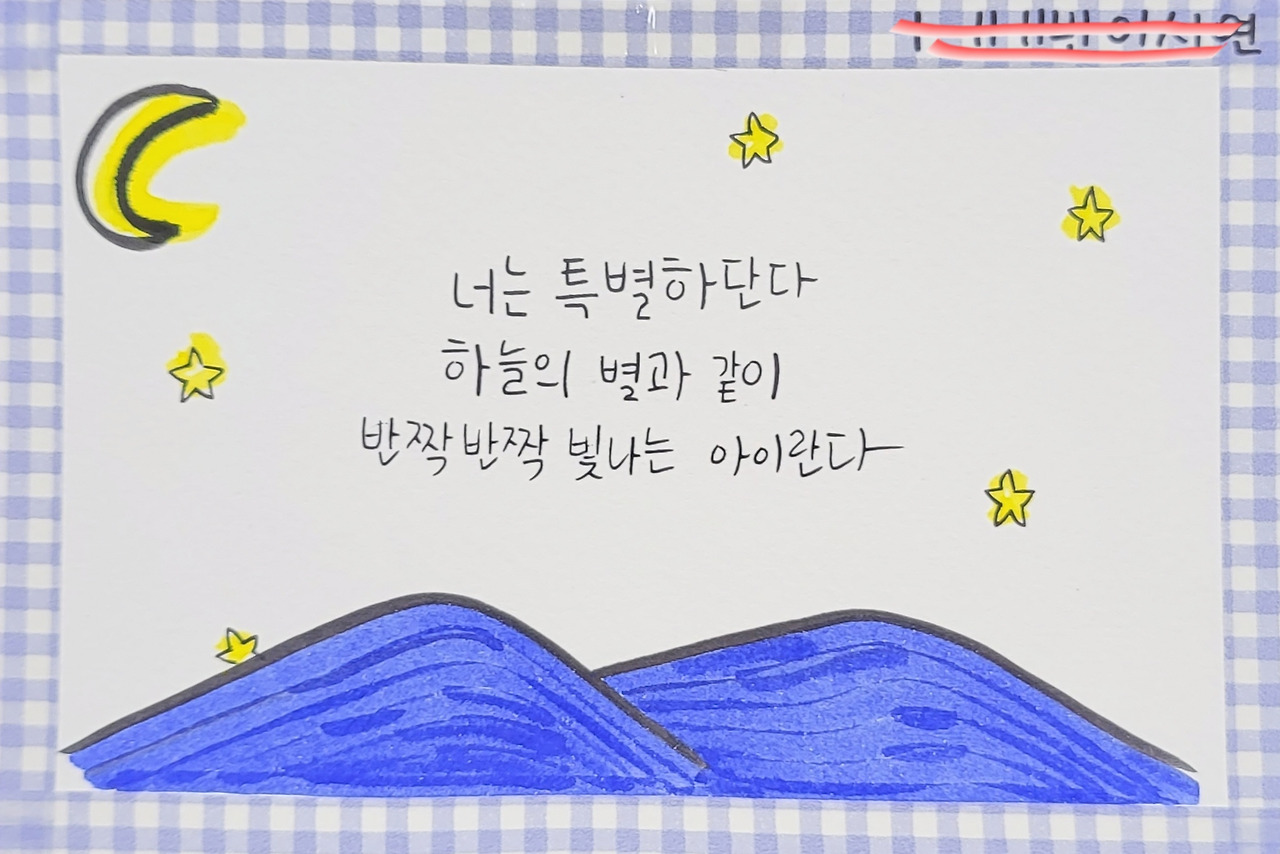 너는 특별하단다
하늘의 별과 같이
반짝반짝 빛나는 아이란다